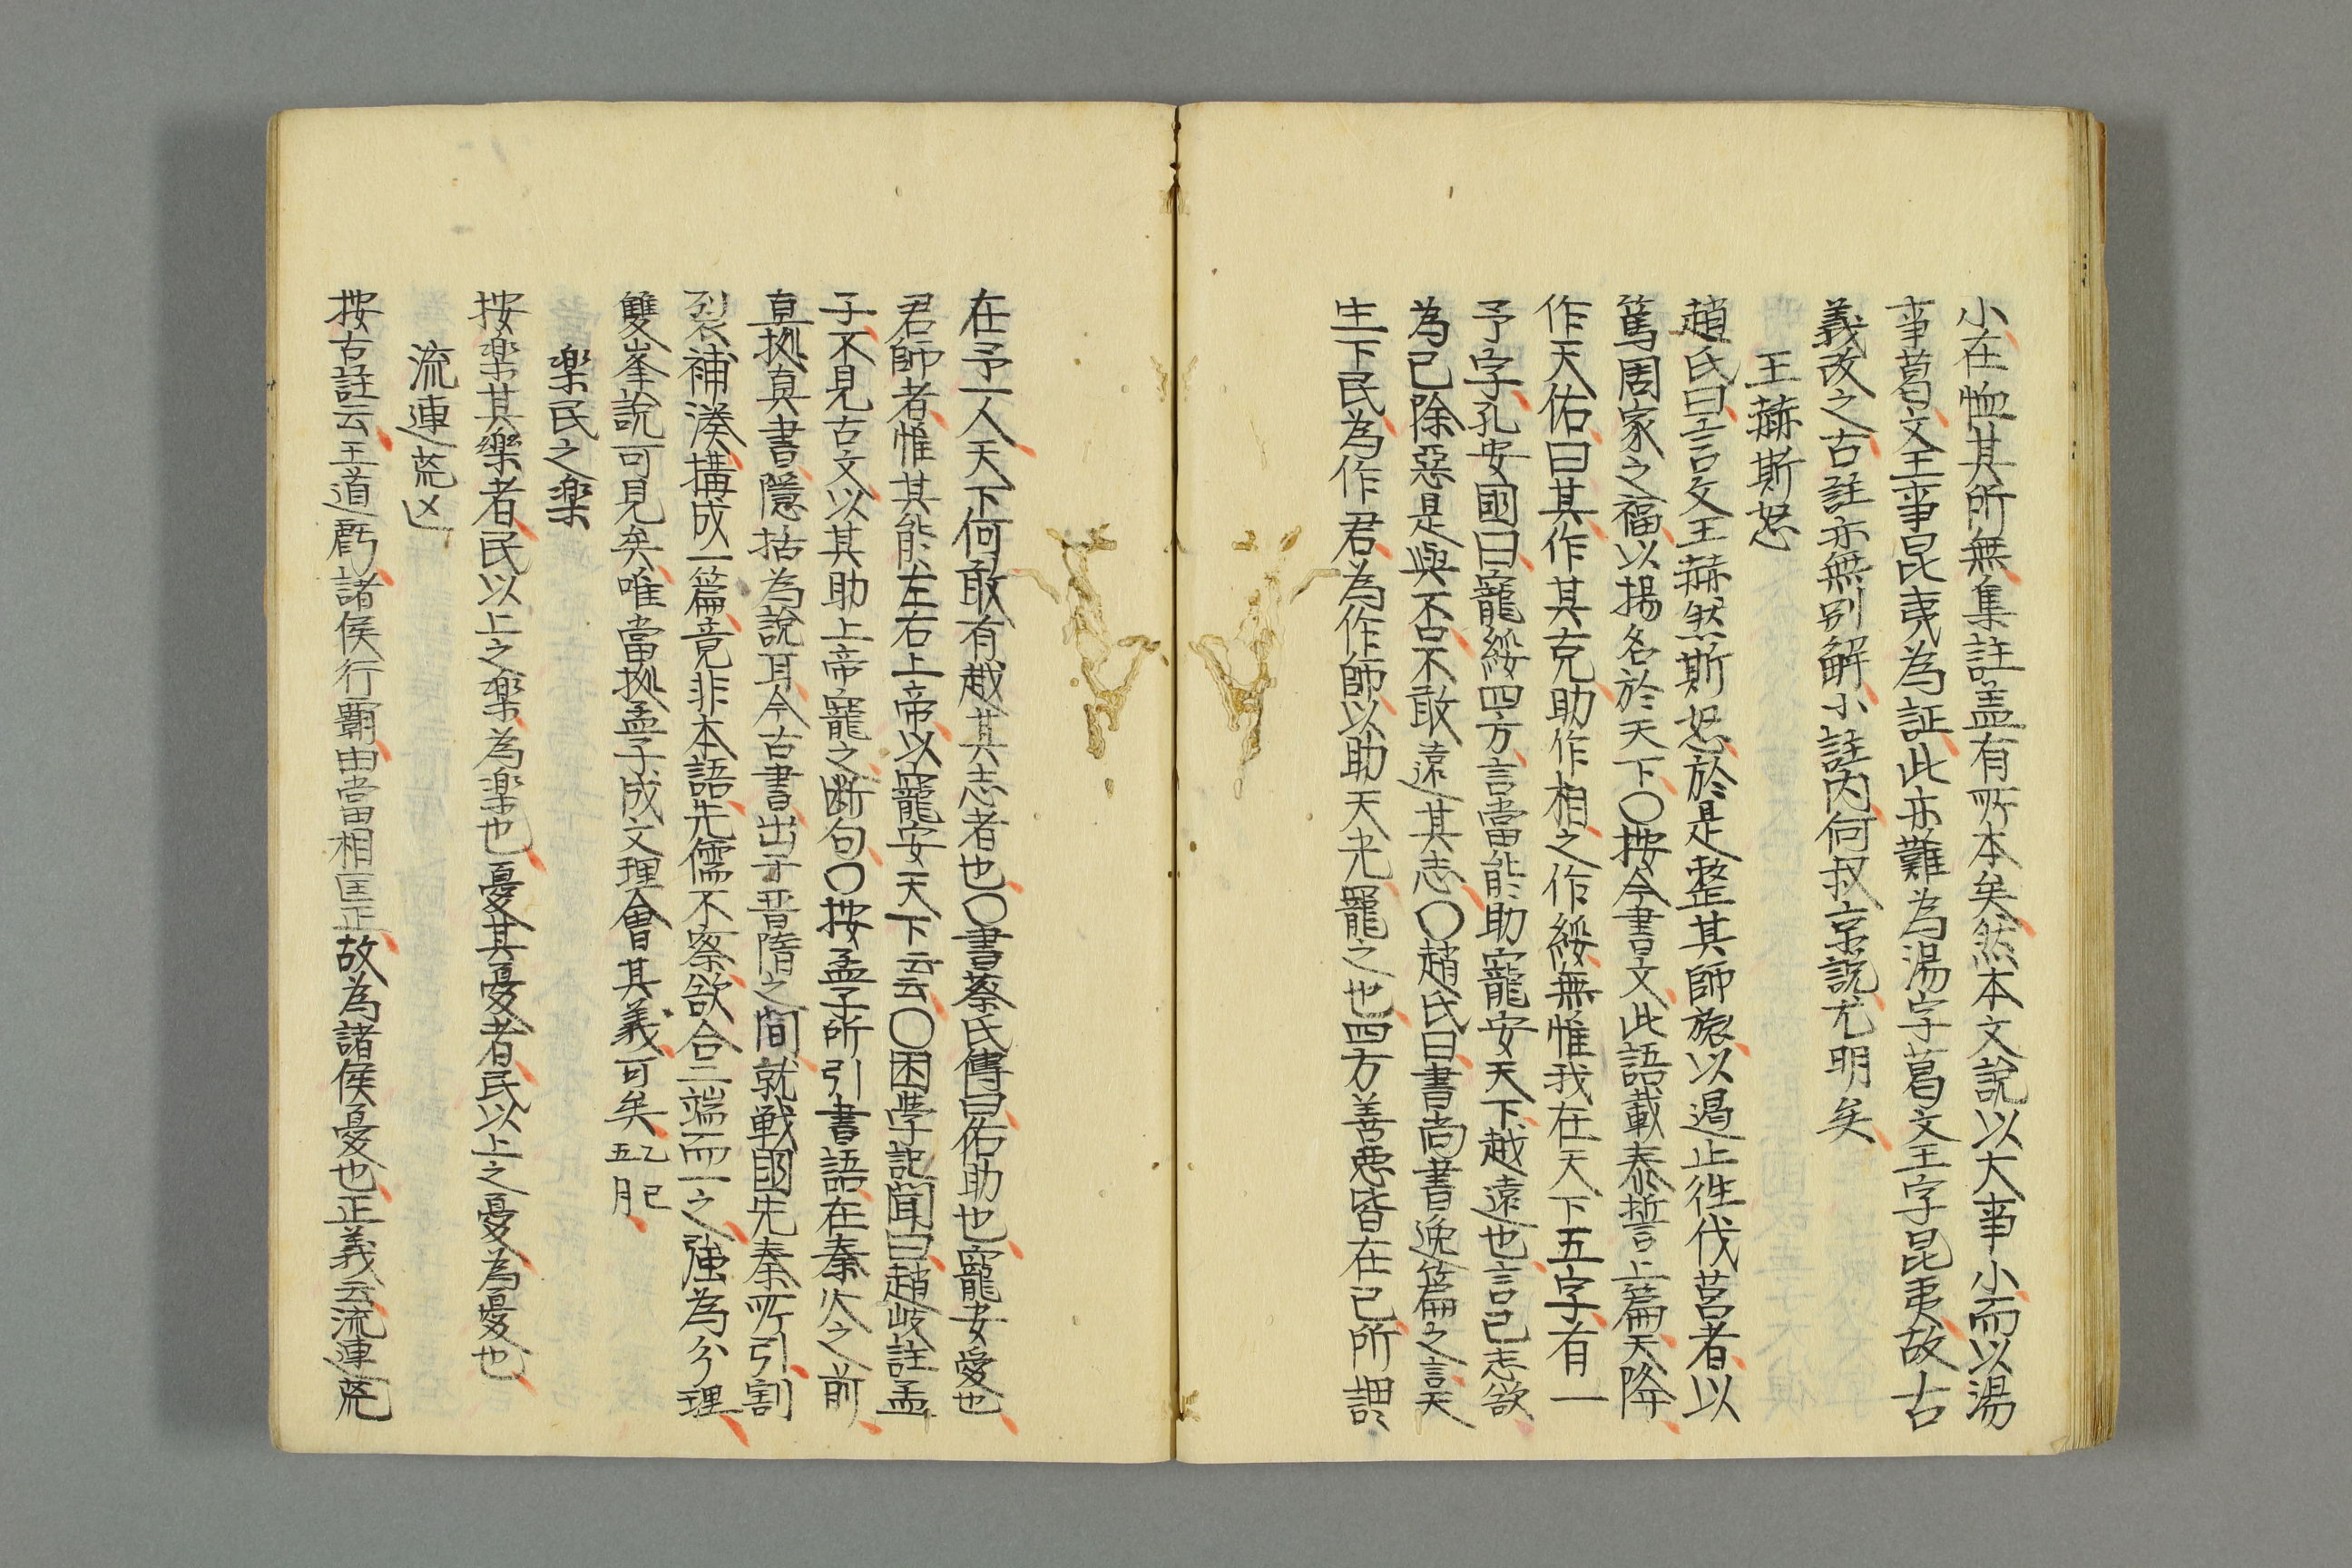 小在恤其所無集註盖有所本矣然本文說以大事小而以湯
事葛文王事昆夷為証此亦難為湯字葛文王字昆夷故古
義改之古註亦無別解小註内何叔京說尤明矣
王赫斯怒
趙氏曰言文王赫然斯怒於是整其師旅以遏止徃伐莒者以
篤周家之福以揚名於天下〇按今書文此語載泰誓上篇天降
作天佑曰其作其克助作相之作綏無惟我在天下五字有一
予字孔安國曰寵綏四方言當能助寵安天下越遠也言己志欲
為已除惡是與不否不敢遠其志〇趙氏曰書尚書逸篇之言天
生下民為作君為作師以助天光寵之也四方善悪皆在己所謂
在予一人天下何敢有越其志者也〇書蔡氏傳曰佑助也寵安愛也
君師者惟其能左右上帝以寵安天下云云〇困學記聞曰趙岐註孟
子不見古文以其助上帝寵之断句〇按孟子所引書語在秦火之前
真拠真書隱括為說耳今古書出于晋隋之間就戦國先秦所引割
裂補湊搆成一篇竟非本語先儒不察欲合二端而一之強為分理
雙峯說可見矣唯當拠孟子成文理會其義可矣 乙巳五月
楽民之楽
按楽其樂者民以上之楽為楽也憂其憂者民以上之憂為憂也
流連荒亾
按古註云王道虧諸侯行覇由當相匡正故為諸侯憂也正義云流連荒